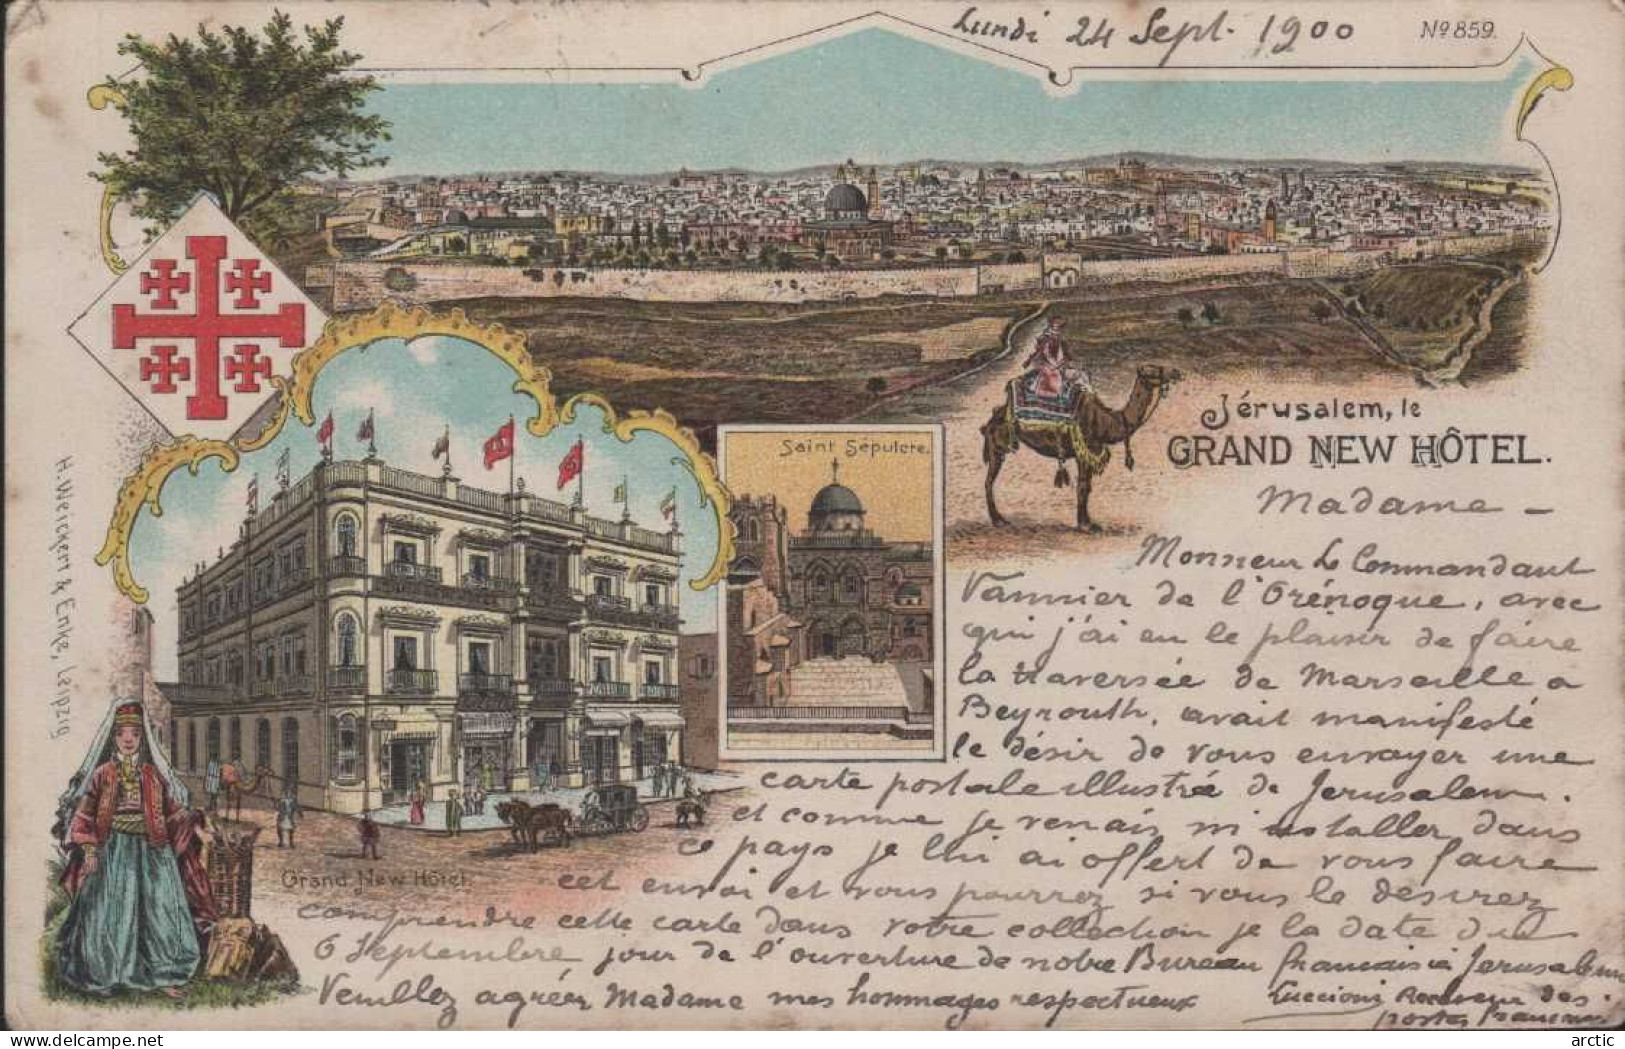 Lundi 24 Sept. 1900
Nº 859.
Saint Sépulcre.
Jérusalem, le
GRAND NEW HÔTEL.
H. Weickert & Enke, Leipzig
Grand New Hôtel.
Madame –
Monsieur Le Commandant
Vannier de l'Orénoque, avec
qui j'ai eu le plaisir de faire
la traversée de Marseille a
Beyrouth, avait manifesté
le désir de vous envoyer une
carte postale illustrée de Jerusalem.
et comme je venais m'installer dans
ce pays je lui ai offert de vous faire
cet envoi et vous pourrez si vous le desirez
comprendre cette carte dans votre collection je la date du
6 Septembre jour de l'ouverture de notre Bureau français à Jerusalem
Veuillez agréer Madame mes hommages respectueux
Luccioni Receveur des
postes françaises
arctic